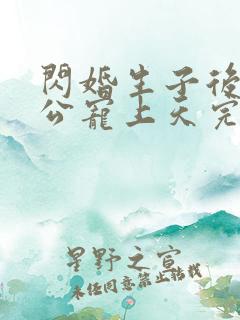 閃婚生子後
公寵上天完
星野之宣
未任同意禁止轉載